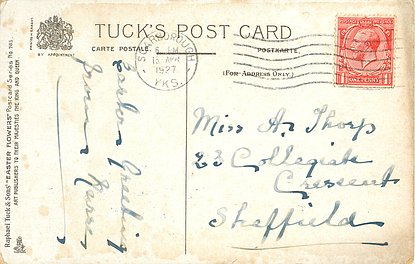 TUCK'S POST CARD
CARTE POSTALE.
POSTKARTE.
(FOR ADDRESS ONLY.)
BY APPOINTMENT
SCARBOROUGH
1927
YKS.
ONE PENNY
Raphael Tuck & Sons' "EASTER FLOWERS" Postcard Series No
ART PUBLISHERS TO THEIR MAJESTIES THE KING AND QUEEN
Easter Greeting
from
Miss A. Thorp
23 Collegiate
Crescent
Sheffield